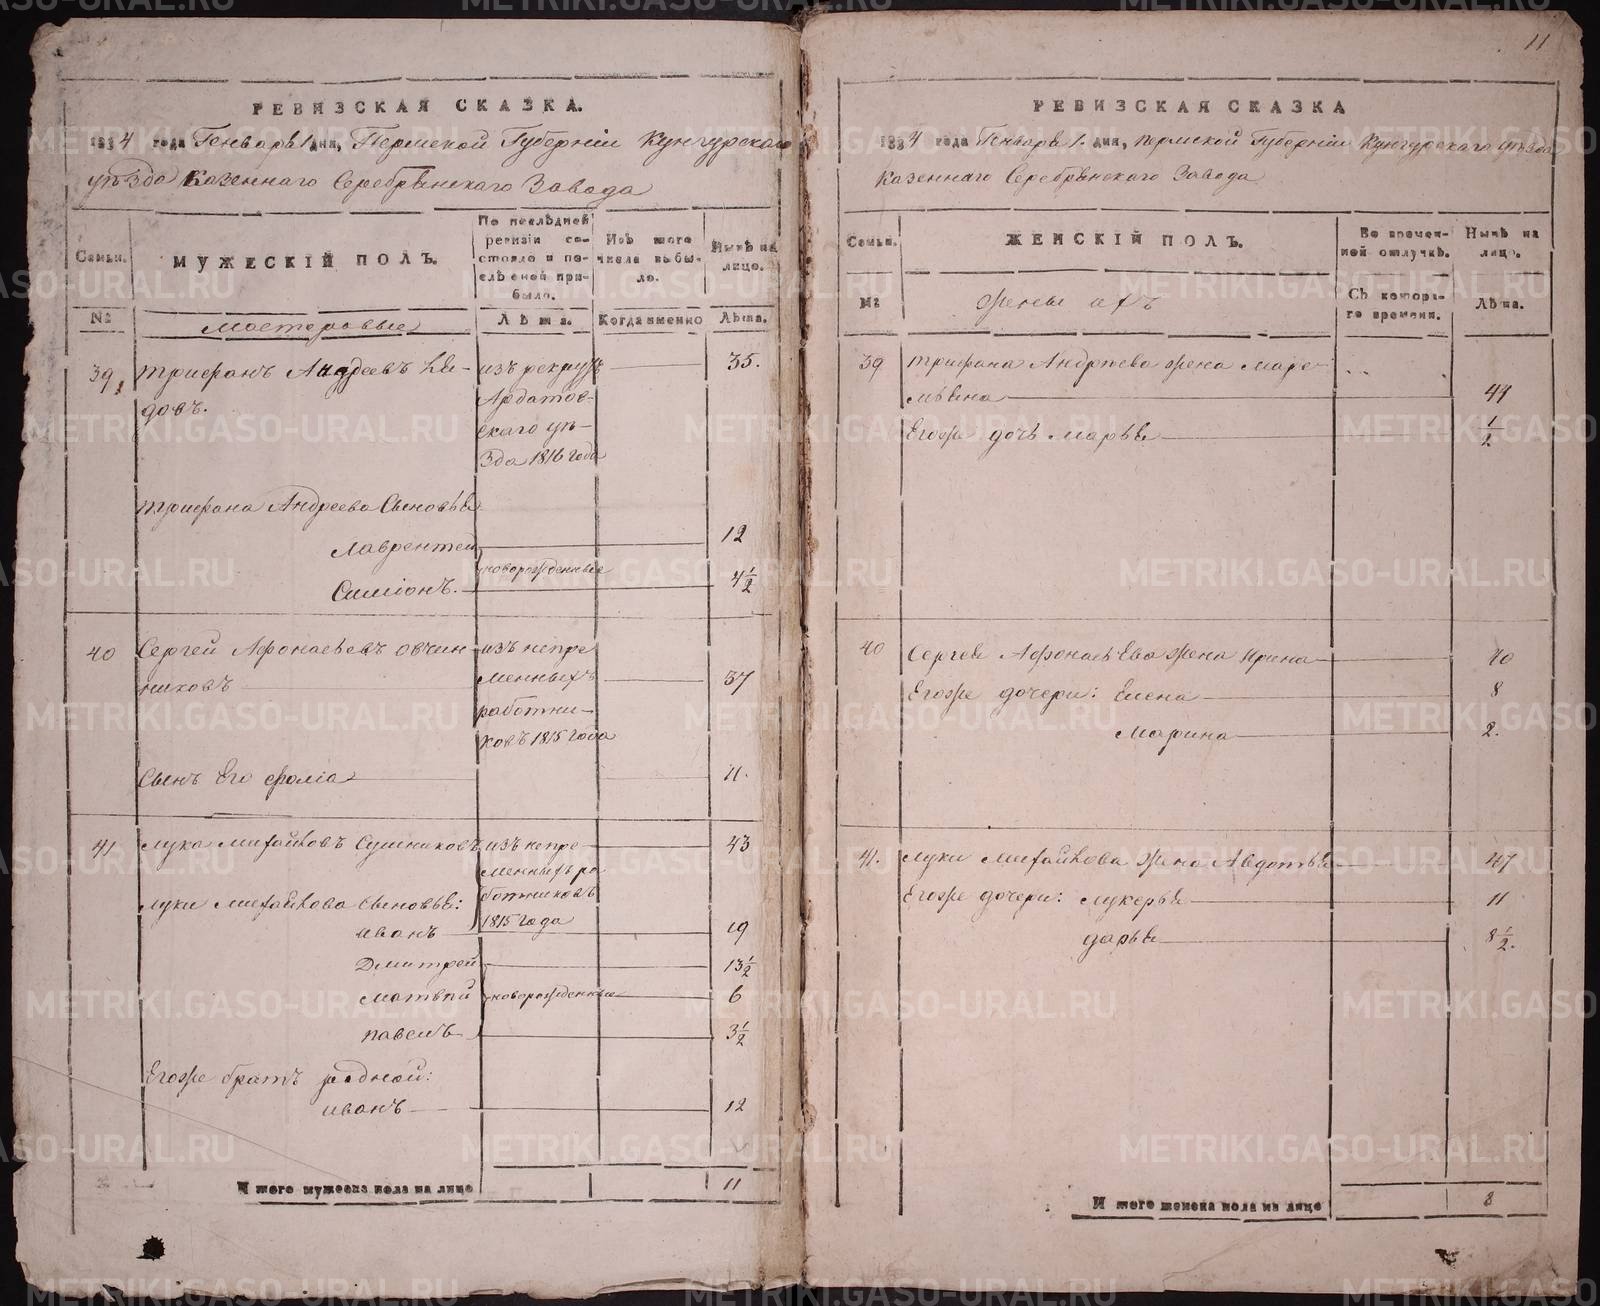 11
РЕВИЗСКАЯ СКАЗКА.
1834 года Генваря 1 дня, Пермской Губерніи Кунгурскаго
уѣзда Казеннаго Серебрянскаго Завода
Семьи.
МУЖЕСКІЙ ПОЛЪ.
По послѣдней
ревизіи со-
стояло и по-
слѣ оной при-
было.
Изъ того
числа выбы-
ло.
Нынѣ на
лицо.
№
Мастеровые
Лѣта.
Когда именно
Лѣта.
39 Трифанъ Андреевъ
довъ.
изъ рекрутъ
Ардатов-
скаго уѣ-
зда 1816 года
35.
Трифана Андреева Сыновья
Лаврентей
12
новорожденные
Симіонъ.
4 1/2
40 Сергей Афонасьевъ Овчин-
никовъ
изъ непре
менныхъ
работни-
ковъ 1815 года
37
Сынъ Его Фома
11.
41 Лука Михайловъ Сушниковъ
изъ непре-
менныхъ ра
ботниковъ
1815 года
43
Луки Михайлова Сыновья:
иванъ
19
Дмитрей
13 1/2
матвѣй
новорожденные
6
павелъ
3 1/2
Егоже братъ родной:
иванъ
12
Итого мужеска пола на лицо
11
РЕВИЗСКАЯ СКАЗКА
1834 года Генваря 1. дня, Пермской Губерніи Кунгурскаго уѣзда
Казеннаго Серебрянскаго Завода
Семьи.
ЖЕНСКІЙ ПОЛЪ.
Во времен-
ной отлучкѣ.
Нынѣ на
лицо.
№
Жены ихъ
Съ котора-
го времени.
Лѣта.
39 Трифана Андреева жена Маре-
мьяна
44
Егоже дочь Марья
1/2
40 Сергея Афонасьева жена Ирина
40
Егоже дочери: Елена
8
Марина
2.
41. Луки Михайлова жена Авдотья
47
Егоже дочери: Лукерья
11
дарья
8 1/2.
Итого женска пола на лицо
8
METRIKI.GASO-URAL.RU